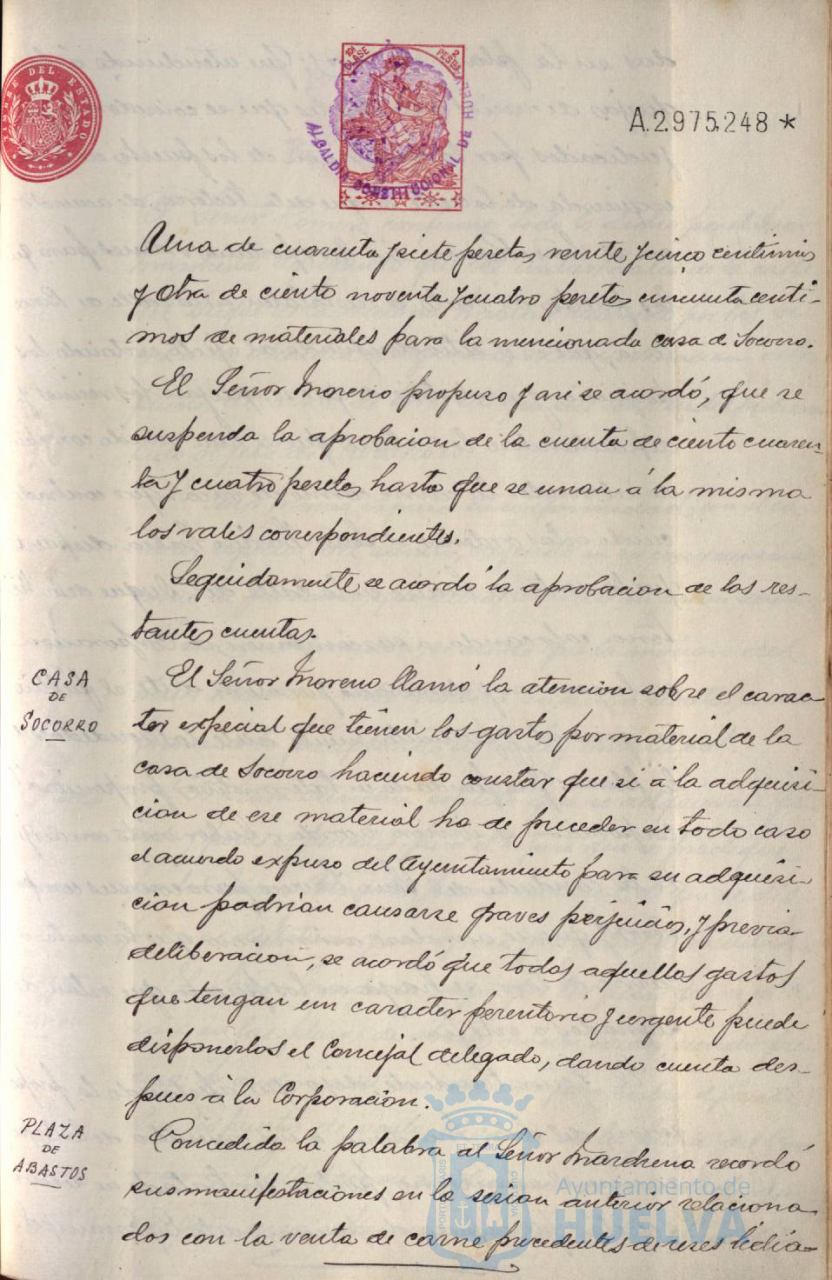 TIMBRE DEL ESTADO
10ª CLASE 2 PESETAS
ALCALDIA CONSTITUCIONAL DE HUELVA
A.2.975.248 *
Una de cuarenta y siete pesetas veinte y cinco centimos
y otra de ciento noventa y cuatro pesetas cincuenta centi-
mos de materiales para la mencionada casa de Socorro.
El Señor Moreno propuso y asi se acordó, que se
suspenda la aprobacion de la cuenta de ciento cuaren-
ta y cuatro pesetas hasta que se unan á la misma
los vales correspondientes.
Seguidamente se acordó la aprobacion de las res-
tantes cuentas.
CASA
DE
SOCORRO
El Señor Moreno llamó la atencion sobre el carac-
ter especial que tienen los gastos por material de la
casa de Socorro haciendo constar que si á la adquisi-
cion de ese material ha de preceder en todo caso
el acuerdo expreso del Ayuntamiento para su adquisi-
cion podrian causarse graves perjuicios, y previa
deliberacion, se acordó que todos aquellos gastos
que tengan un caracter perentorio y urgente puede
disponerlos el Concejal delegado, dando cuenta des-
pues á la Corporacion.
PLAZA
DE
ABASTOS
Concedida la palabra al Señor Marchena recordó
sus manifestaciones en la sesion anterior relaciona-
dos con la venta de carne procedentes de reses lidia-
Ayuntamiento de
HUELVA